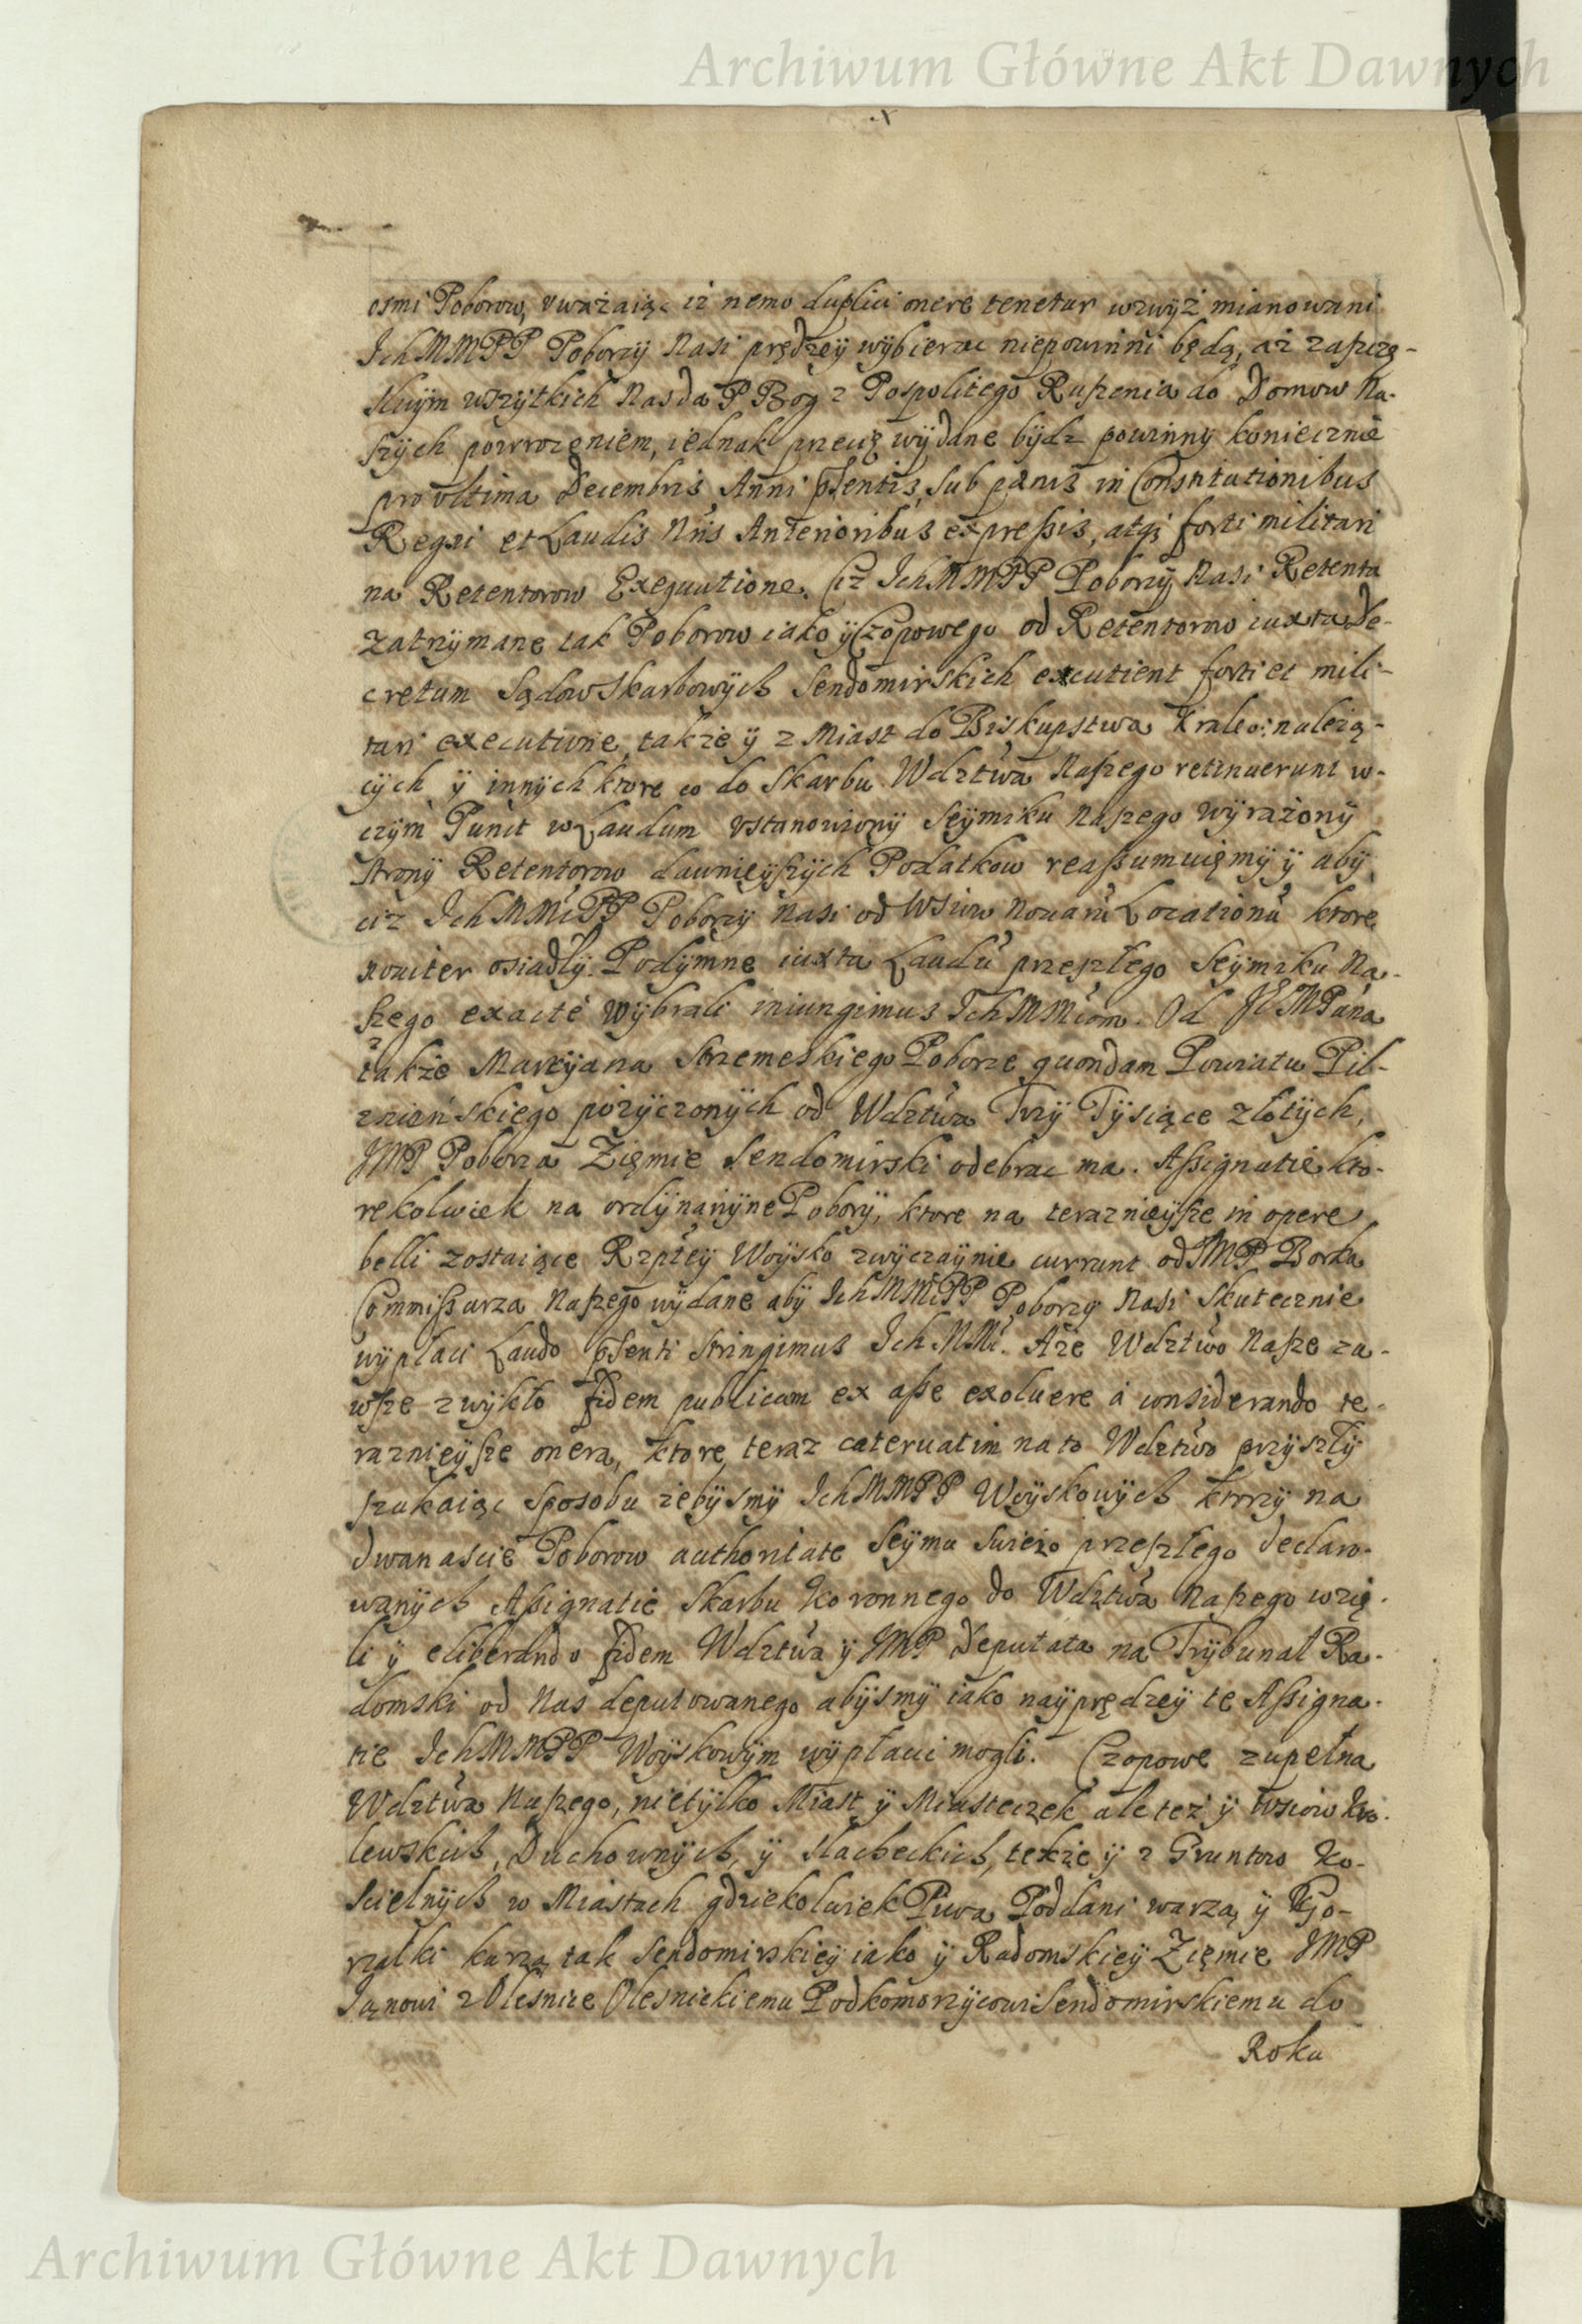 Archiwum Główne Akt Dawnych
osmi Poborow, vważaiąc iż nemo duplici onere tenetur wzwÿż mianowani
Ich MMPP Poborzÿ Nasi prędzeÿ wÿbierac niepowinni będą, aż za szczę-
sliwÿm wszÿtkich Nas da P Bog z Pospolitego Ruszenia do Domow Na-
szÿch powroceniem, iednak przecię wÿdane bÿdz powinnÿ koniecznie
pro vltima Decembris Anni pñsentis, sub pænis in Constitutionibus
Regni et Laudis Nr̃is Anterioribus expressis, atq; forti militari
na Retentorow Exequutione. Ciż Ich MMPP Poborzÿ Nasi Retenta
Zatrzÿmane tak Poborow iako ÿ Czopowego od Retentorow iuxta De-
cretum Sądow Skarbowÿch Sendomirskich excutient forti et mili-
tari executione, także ÿ z Miast do Biskupstwa Krako: należą-
cÿch ÿ innÿch ktore co do Skarbu Wdztwa Naszego retinuerunt w-
czÿm Punct w Laudum vstanowionÿ Seÿmiku Naszego wÿrażonÿ
stronÿ Retentorow dawnieÿszÿch Podatkow reassumuięmÿ ÿ abÿ
ciż Ich MMćPP Poborzÿ Nasi od Wsiow Nouarũ Locationũ ktore
nouiter osiadłÿ Podÿmne iuxta Laudũ przeszłego Seÿmiku Na-
szego exacte wÿbrali iniungimus Ich MMciom. Od JE MPana
także Marcÿana Strzemeskiego Poborce quondam Powiatu Pil-
znieńskiego pożÿczonÿch od Wdztwa Trzÿ Tÿsiące złotÿch,
JMP Poborca Ziemie Sendomirski odebrac ma. Assignatie kto-
rekolwiek na ordÿnarÿne Poborÿ, ktore na teraznieÿsze in opere
belli zostaiące Rzpłeÿ Woÿsko zwÿczaÿnie currunt od JMP Borka
Commissarza Naszego wÿdane abÿ Ich MMćPP Poborzÿ Nasi Skutecznie
wÿpłaci Laudo pñsenti stringimus Ich MMć. Aże Wdztwo Nasze za-
wsze zwÿkło fidem publicam ex asse exoluere a considerando te-
raznieÿsze onera, ktore teraz cateruatim na to Wdztwo przÿszłÿ
szukaiąc sposobu żebÿsmÿ Ich MMPP Woÿskowÿch ktorzÿ na
dwanascie Poborow authoritate Seÿmu swieżo przeszłego declaro-
wanÿch Assignatie Skarbu Koronnego do Wdztwa Naszego wzię-
li ÿ eliberando fidem Wdztwa ÿ JMP Deputata na Trÿbunał Ra-
domski od Nas deputowanego abÿsmÿ iako naÿprędzeÿ te Assigna-
tie Ich MMPP Woÿskowÿm wÿpłaci mogli. Czopowe zupełna
Wdztwa Naszego, nietÿlko Miast ÿ Miasteczek ale też ÿ Wsiow Kro-
lewskich, Duchownÿch, ÿ slacheckich, także ÿ z Gruntow Ko-
scielnÿch w Miastach gdziekolwiek Piwa Poddani warzą ÿ Go-
rzałki kurzą tak Sendomirskieÿ iako ÿ Radomskieÿ Ziemie JMP
Janowi z Olesnice Olesnickiemu Podkomorzÿcowi Sendomirskiemu do
Roku
Archiwum Główne Akt Dawnych